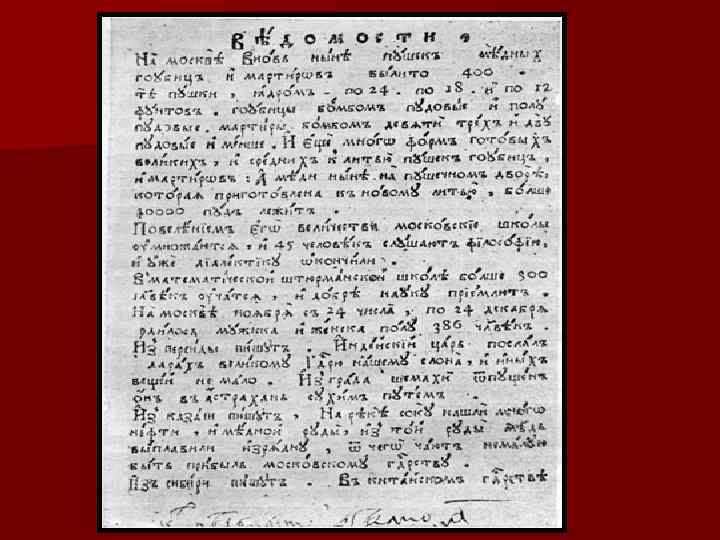 ВѢДОМОСТИ ,
На̀ москвѣ̀ вно́вь ны́нѣ пу́шекъ мѣ́дныхъ
гоу́бицъ и҆ мартировъ вы́лито 400 .
тѣ̀ пу́шки , ядро́мъ - по 24 . по 18 . и҆ по 12
фу́нтовъ . гоу́бицы бо́мбомъ пудо́выѣ и҆ полу
пудо́выѣ . марти́ры бо́мбомъ девятѝ тре́хъ и҆ дву
пудо́выѣ и҆ ме́нше . И҆ є҆щѐ мно́гѡ фо́рмъ гото́выхъ
вели́кихъ , и҆ сре́днихъ к литью̀ пу́шекъ гоу́бицъ ,
и҆ марти́ровъ : А҆ мѣ́ди ны́нѣ на пу́шечномъ дворѣ̀ ,
кото́рая пригото́влена къ но́вому литью̀ , бо́лше
40000 пу́дъ лежи́тъ .
Повелѣ́нїемъ є҆гѡ̀ вели́чества моско́вскїе шко́лы
оу҆множа́ются , и҆ 45 человѣ́къ слу́шаютъ филосо́фїю ,
и҆ ужѐ дїале́ктїку ѡ҆ко́нчили .
В математи́ческой штюрма́нской шко́лѣ бо́лше 300
члвѣ́къ оу́чатся , и҆ до́брѣ нау́ку прїе́млютъ .
На москвѣ̀ ноября̀ съ 24 числа̀ , по 24 декабря̀
роди́лось му́жеска и҆ же́нска по́лу 386 члвѣ́къ .
И҆з̾ перси́ды пи́шутъ . И҆нде́йскїй ца́рь посла́лъ
в дара́хъ вели́кому Гд҆рю на́шему слона̀ , и҆ и҆ны́хъ
веще́й не ма́ло . И҆з̾ гра́да шемахѝ ѿпу́щенъ
о҆́нъ въ а҆́страхань сухи́мъ путе́мъ .
И҆з̾ каза́ни пи́шутъ , На рѣкѣ̀ соку̀ нашлѝ мно́гѡ
не́фти , и҆ мѣ́дной руды̀ , и҆з̾ то́й руды̀ мѣ́дь
вы́плавили изря́дну , ѿ чегѡ̀ ча́ютъ нема́лую
бы́ть при́быль моско́вскому гд҆рству .
И҆з̾ сиби́ри пи́шутъ . Въ кита́йскомъ гд҆рствѣ